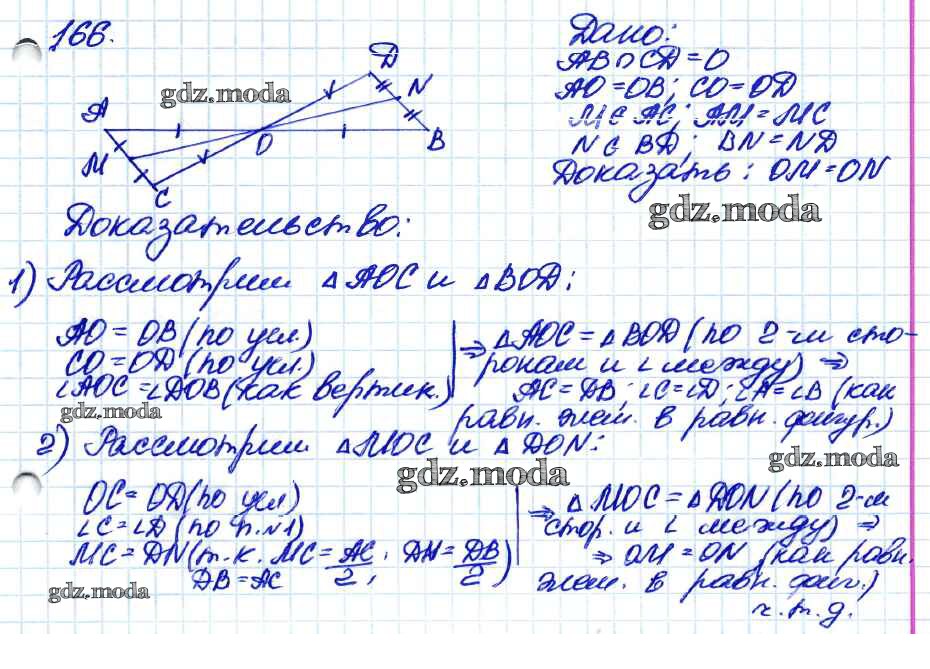 166.
Дано:
AB∩CD=O
AO=OB; CO=OD
M∈AC; AM=MC
N∈BD; BN=ND
Доказать: OM=ON
D
N
gdz.moda
A
O
B
M
C
gdz.moda
Доказательство:
1) Рассмотрим △AOC и △BOD:
AO=OB (по усл.)
CO=OD (по усл.)
∠AOC=∠DOB (как вертик.)
⇒ △AOC=△BOD (по 2-м сто-
ронам и ∠ между) ⇒
AC=DB; ∠C=∠D; ∠A=∠B (как
равн. элем. в равн. фигур.)
gdz.moda
2) Рассмотрим △MOC и △DON:
gdz.moda
gdz.moda
OC=OD (по усл)
∠C=∠D (по п.№1)
MC=DN (т.к. MC=AC/2, DN=DB/2)
DB=AC
⇒ △MOC=△DON (по 2-м
стор. и ∠ между) ⇒
⇒ OM=ON (как равн.
элем. в равн. фиг.)
ч.т.д.
gdz.moda